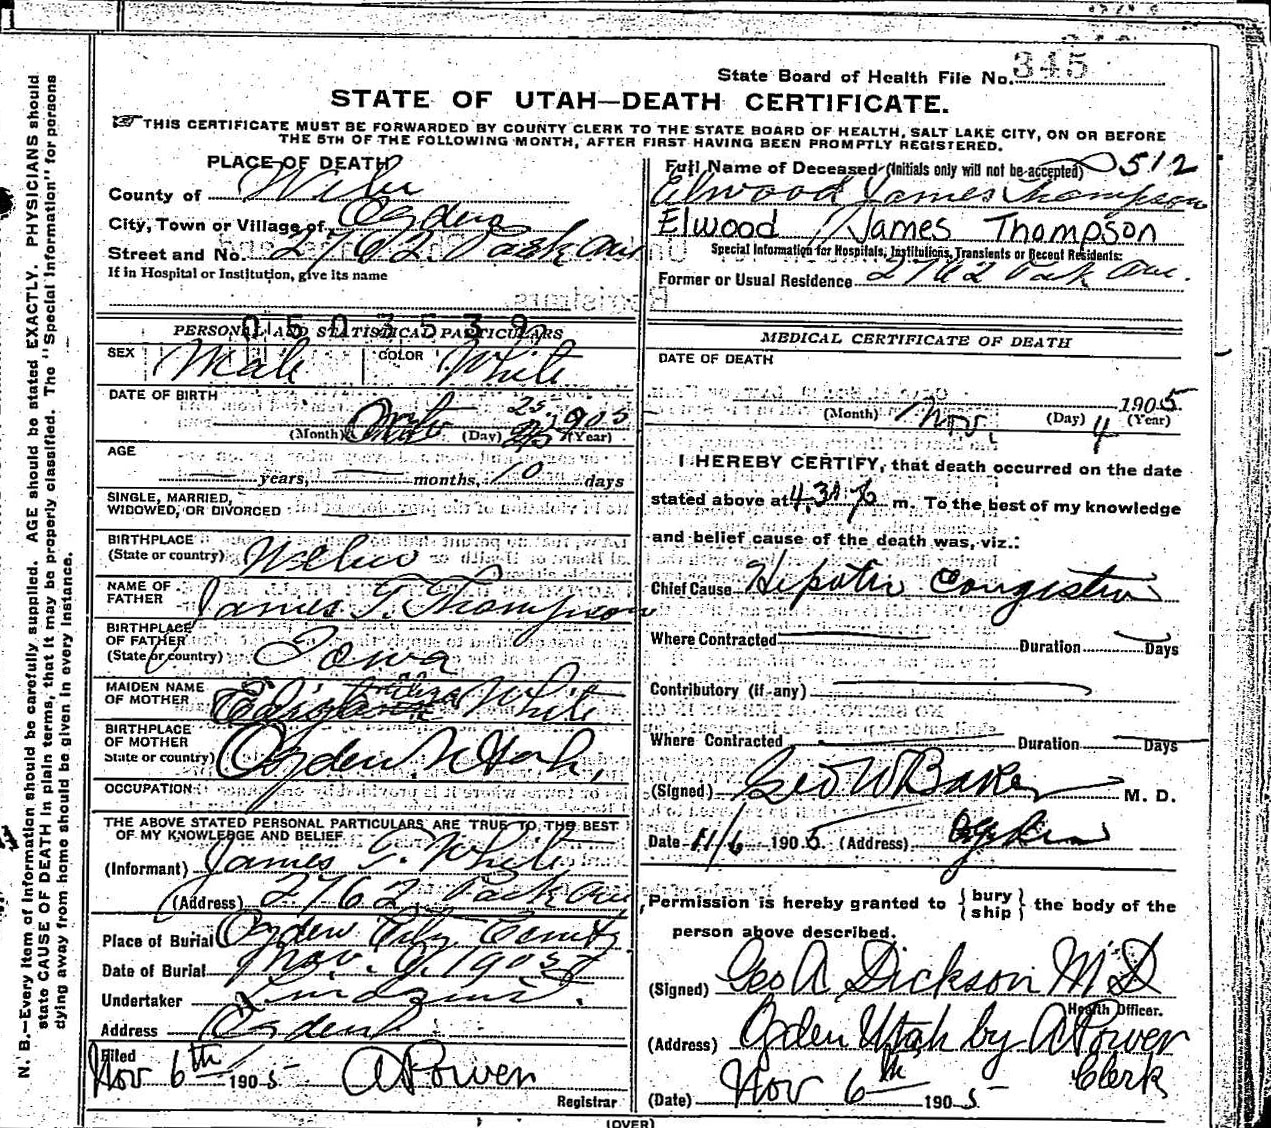 State Board of Health File No. 345
STATE OF UTAH—DEATH CERTIFICATE.
THIS CERTIFICATE MUST BE FORWARDED BY COUNTY CLERK TO THE STATE BOARD OF HEALTH, SALT LAKE CITY, ON OR BEFORE
THE 5TH OF THE FOLLOWING MONTH, AFTER FIRST HAVING BEEN PROMPTLY REGISTERED.
PLACE OF DEATH
County of Weber
City, Town or Village of Ogden
Street and No. 2762 Park Ave
If in Hospital or Institution, give its name
Full Name of Deceased (Initials only will not be accepted) 512
Elwood James Thompson
Elwood James Thompson
Special Information for Hospitals, Institutions, Transients or Recent Residents:
Former or Usual Residence 2762 Park Ave.
0503539
PERSONAL AND STATISTICAL PARTICULARS
SEX Male COLOR White
DATE OF BIRTH
25 1905
(Month) (Day) (Year)
AGE
years, months, 10 days
SINGLE, MARRIED,
WIDOWED, OR DIVORCED
BIRTHPLACE
(State or country)
NAME OF
FATHER James T. Thompson
BIRTHPLACE
OF FATHER
(State or country) Iowa
MAIDEN NAME
OF MOTHER White
BIRTHPLACE
OF MOTHER
State or country) Ogden Utah,
OCCUPATION
THE ABOVE STATED PERSONAL PARTICULARS ARE TRUE TO THE BEST
OF MY KNOWLEDGE AND BELIEF
(Informant) James T. White
(Address) 2762 Park Ave
Place of Burial Ogden City
Date of Burial Nov. 1905
Undertaker
Address Ogden
Filed
Nov 6th 1905 A Power
Registrar
MEDICAL CERTIFICATE OF DEATH
DATE OF DEATH
1905
(Month) Nov. (Day) 4 (Year)
I HEREBY CERTIFY, that death occurred on the date
stated above at 4.30 m. To the best of my knowledge
and belief cause of the death was, viz.:
Chief Cause Hepatic Congestion
Where Contracted Duration Days
Contributory (if any)
Where Contracted Duration Days
(Signed) Geo W Baker M. D.
Date 11/6 1905 (Address) Ogden
Permission is hereby granted to { bury ship } the body of the
person above described.
(Signed) Geo A Dickson M D
Health Officer.
(Address) Ogden Utah by A Power
Clerk
(Date) Nov 6th 1905
(OVER)
N. B.—Every item of information should be carefully supplied. AGE should be stated EXACTLY. PHYSICIANS should
state CAUSE OF DEATH in plain terms, that it may be properly classified. The "Special Information" for persons
dying away from home should be given in every instance.